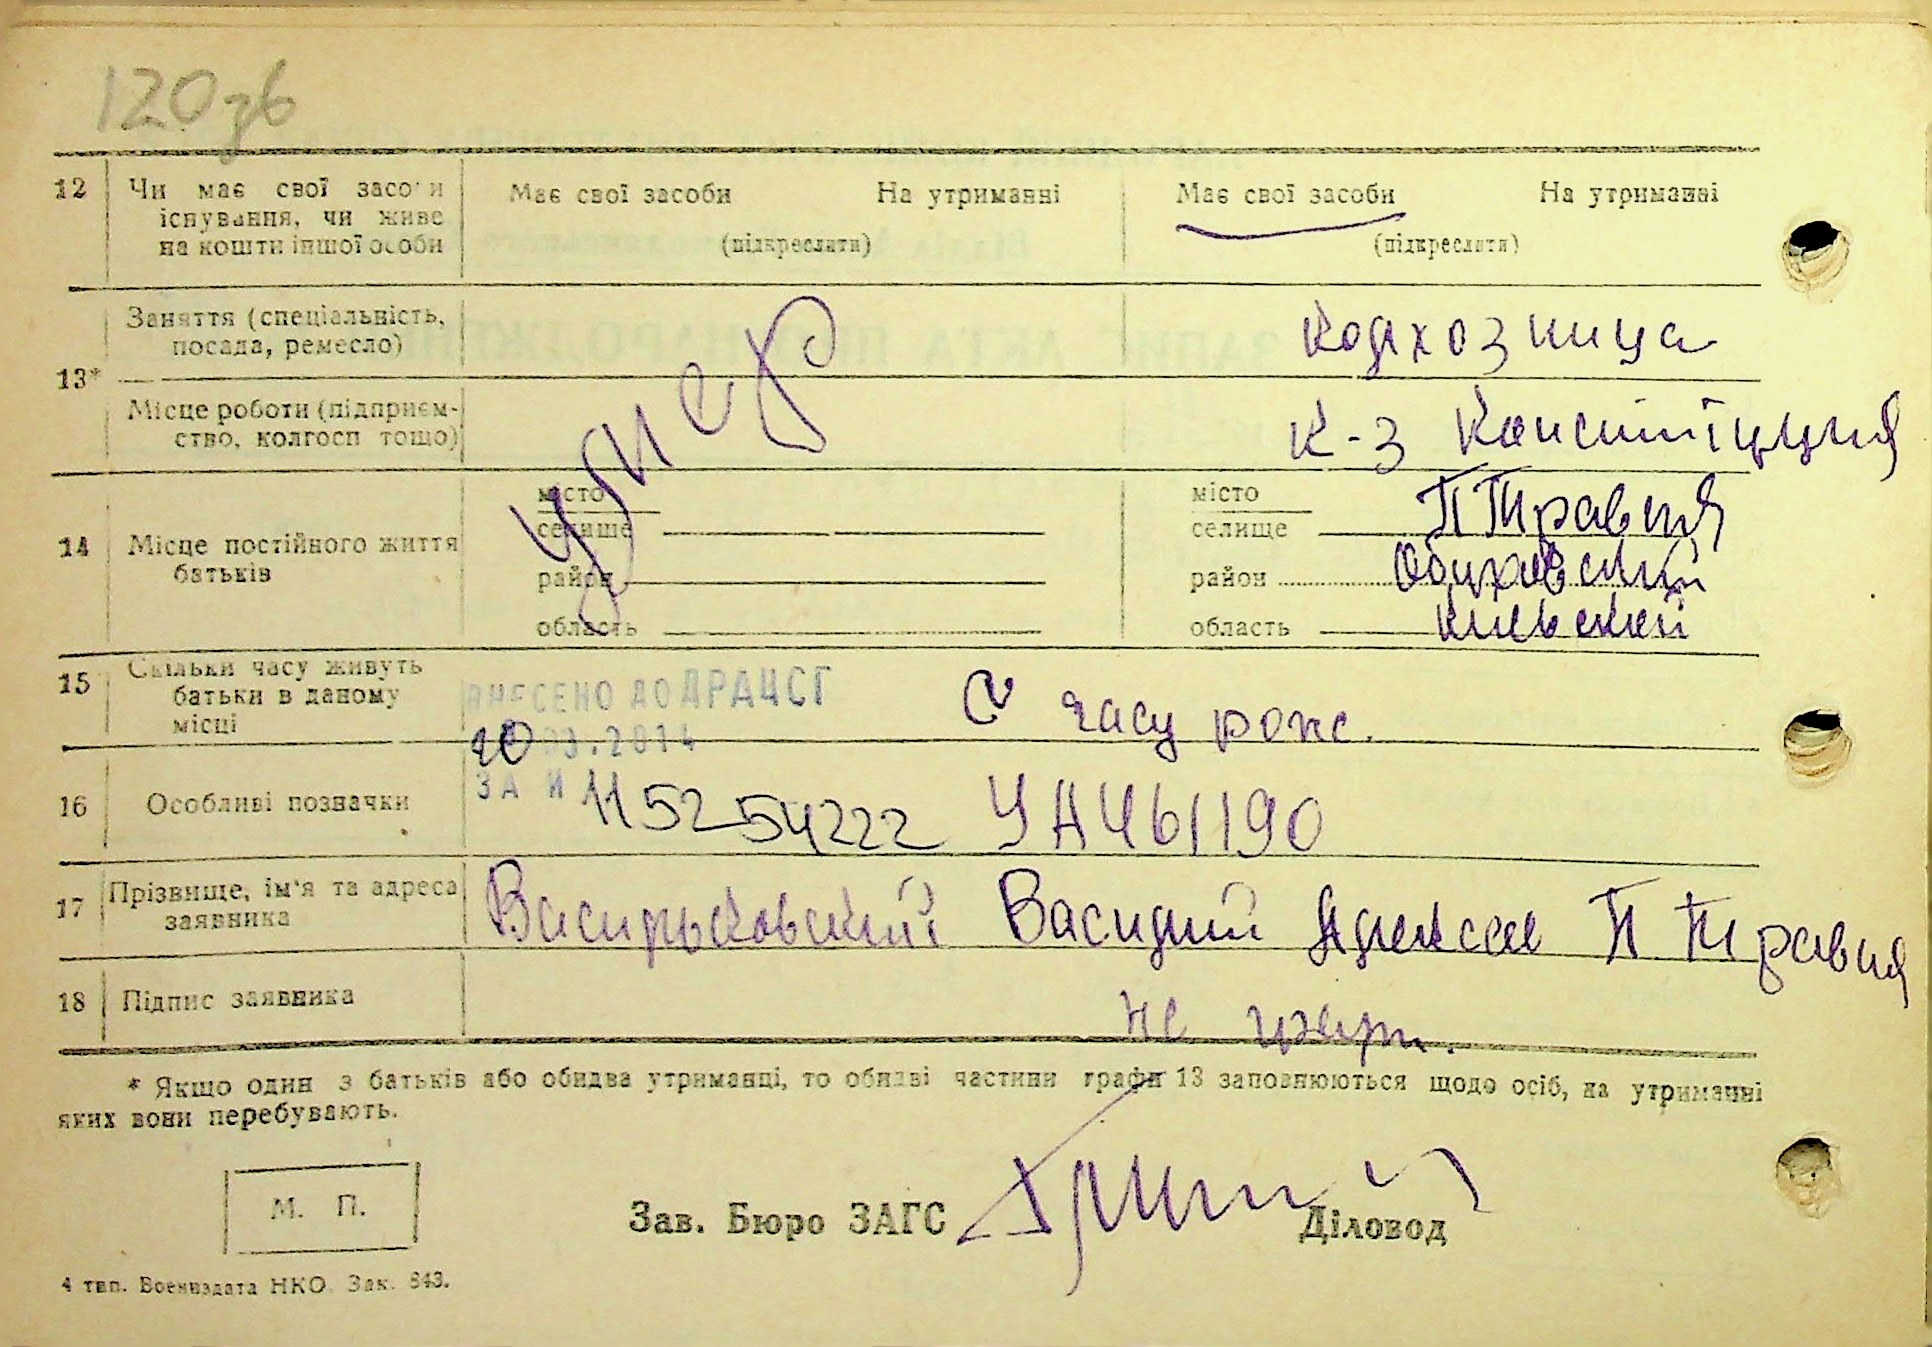 120зв
12 Чи має свої засоби Має свої засоби На утриманні Має свої засоби На утриманні
існування, чи живе
на кошти іншої особи (підкреслити) (підкреслити)
Заняття (спеціальність, колхозница
посада, ремесло)
13*
Місце роботи (підприєм- к-з Конституция
ство, колгосп тощо)
умер
місто місто П Травня
селище селище
14 Місце постійного життя
батьків район район Обуховский
область область Киевский
15 Скільки часу живуть
батьки в даному ВНЕСЕНО ДО ДРАЦСГ С часу рожс.
місці 20 03.2014
16 Особливі позначки ЗА № 115254222 УА461190
17 Прізвище, ім'я та адреса Васильковский Василий Алексее П Травня
заявника
18 Підпис заявника не
* Якщо один з батьків або обидва утриманці, то обидві частини графи 13 заповнюються щодо осіб, на утриманні
яких вони перебувають.
М. П.
Зав. Бюро ЗАГС Діловод
4 тип. Воениздата НКО. Зак. 843.